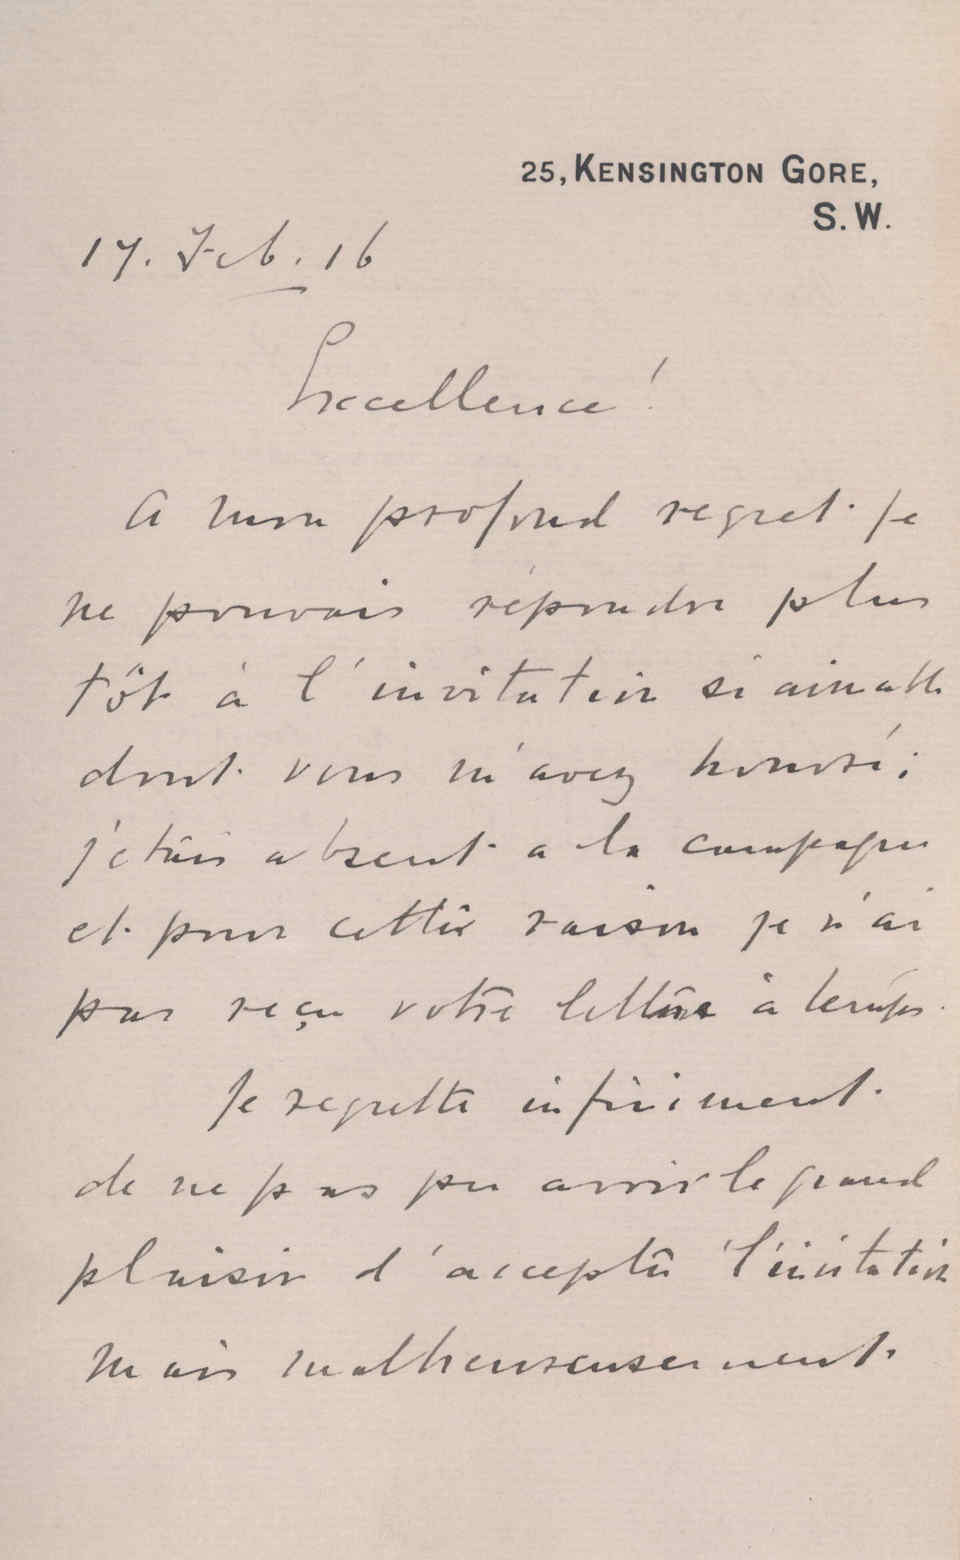 25, KENSINGTON GORE,
S.W.
17. Feb. 16
Excellence!
A mon profond regret je
ne pouvais répondre plus
tôt à l'invitation si aimable
dont vous m'avez honoré;
j'étais absent a la campagne
et pour cette raison je n'ai
pas reçu votre lettre à temps.
Je regrette infiniment
de ne pas pu avoir le grand
plaisir d'accepter l'invitation
mais malheureusement